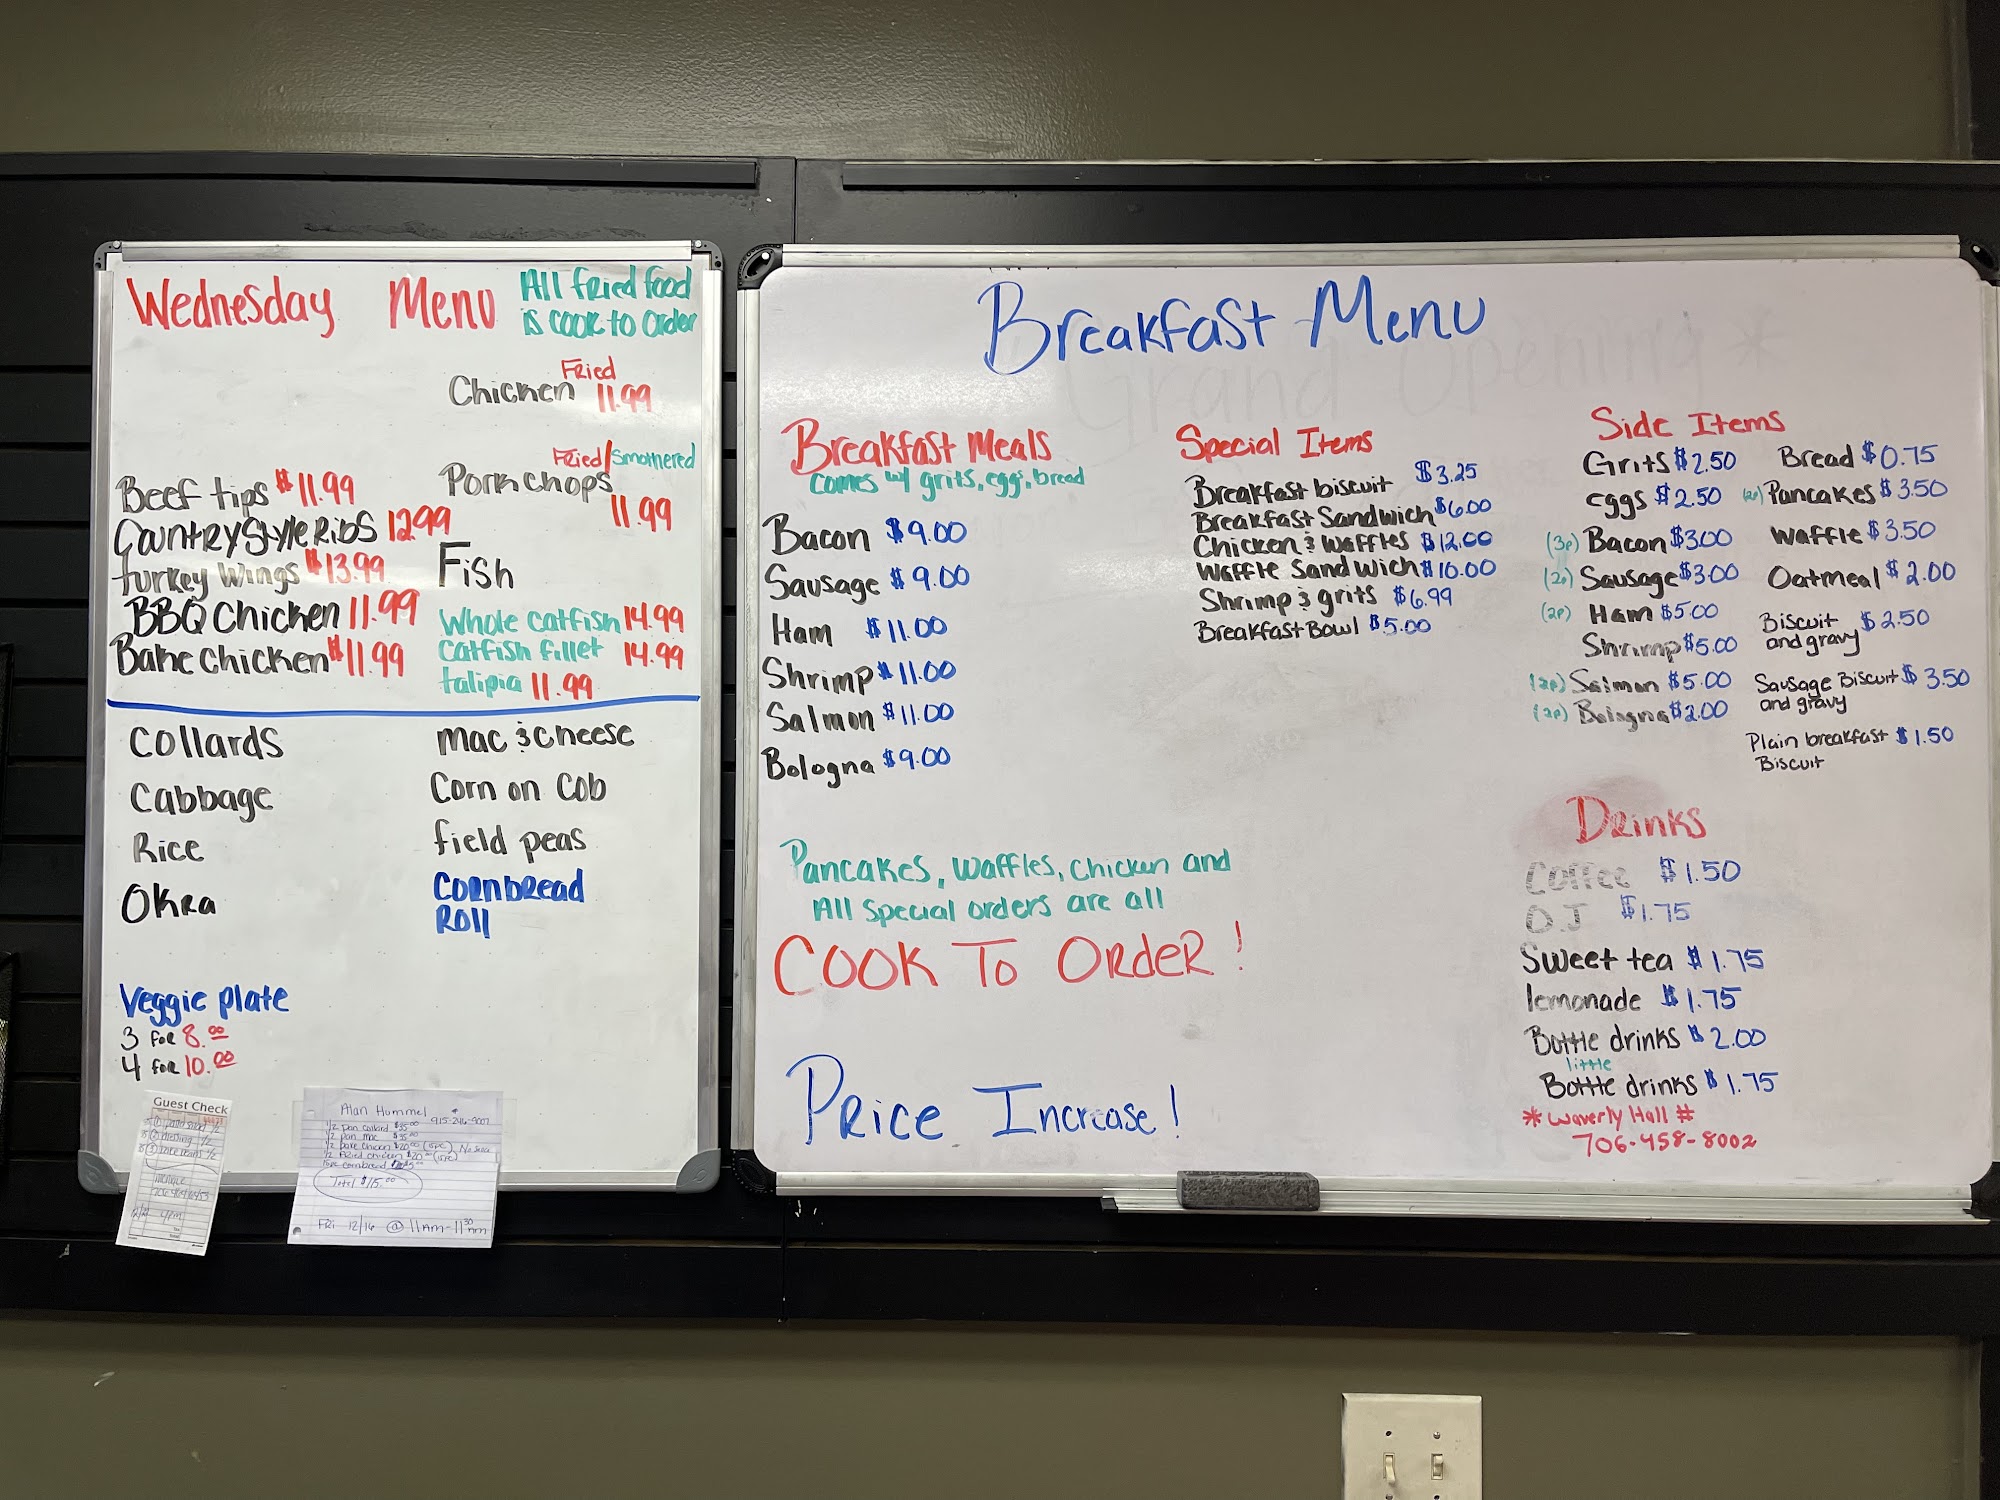 Wednesday Menu
All fried food
is cook to order
Chicken Fried 11.99
Pork chops Fried/Smothered
11.99
Beef tips $11.99
Country Style Ribs 12.99
turkey wings $13.99
BBQ Chicken 11.99
Bake Chicken $11.99
Fish
Whole catfish 14.99
Catfish fillet 14.99
talipia 11.99
Collards
Cabbage
Rice
Okra
Mac & cheese
Corn on Cob
field peas
Cornbread
Roll
Veggie plate
3 for 8.00
4 for 10.00
Guest Check
Alan Hummel
1/2 pan collard $35.00
1/2 pan mac $35.00
Total
Fri 12/16 @ 11am-11:30am
Breakfast Menu
Grand Opening *
Breakfast Meals
comes w/ grits, egg, bread
Bacon $9.00
Sausage $9.00
Ham $11.00
Shrimp $11.00
Salmon $11.00
Bologna $9.00
Special Items
Breakfast biscuit $3.25
Breakfast Sandwich $6.00
Chicken & Waffles $12.00
Waffle Sandwich $10.00
Shrimp & grits $6.99
Breakfast Bowl $5.00
Side Items
Grits $2.50
eggs $2.50
(3p) Bacon $3.00
(2p) Sausage $3.00
(2p) Ham $5.00
Shrimp $5.00
(2p) Salmon $5.00
(2p) Bologna $2.00
Bread $0.75
(2p) Pancakes $3.50
Waffle $3.50
Oatmeal $2.00
Biscuit
and gravy $2.50
Sausage Biscuit $3.50
and gravy
Plain breakfast $1.50
Biscuit
Pancakes, Waffles, Chicken and
All special orders are all
COOK TO ORDER!
Price Increase!
Drinks
Coffee $1.50
O.J $1.75
Sweet tea $1.75
lemonade $1.75
Bottle drinks $2.00
little
Bottle drinks $1.75
* Waverly Hall #
706-458-8002